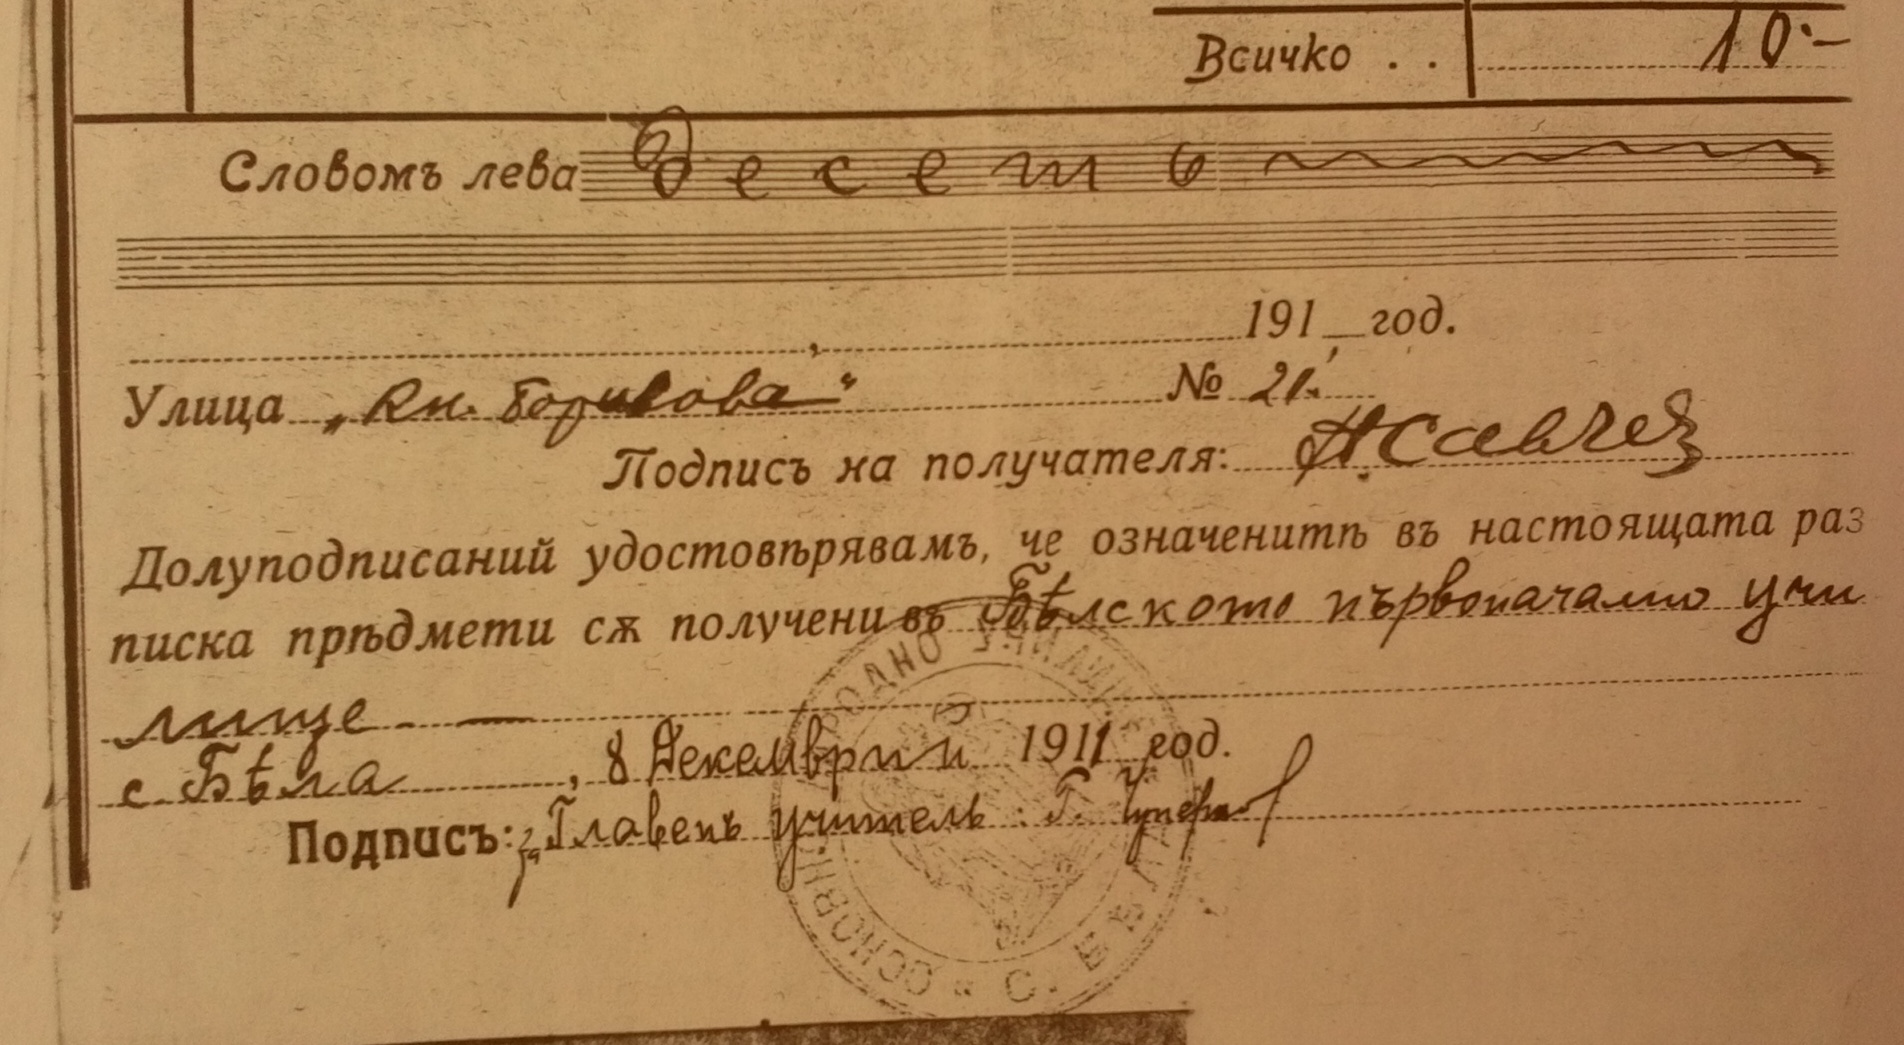 Всичко . . 10·–
Словомъ лева десеть
191 год.
Улица „Кн. Борисова“ № 21.
Подписъ на получателя: Савчев
Долуподписаний удостовѣрявамъ, че означенитѣ въ настоящата раз
писка прѣдмети сѫ получени въ Бѣлското първоначално учи
лище –
с. Бѣла, 8 Декемврии 1911 год.
Подписъ: за Главенъ учитель: Г.
ОСНОВНО НАРОДНО УЧИЛИЩЕ * С. БѢЛА